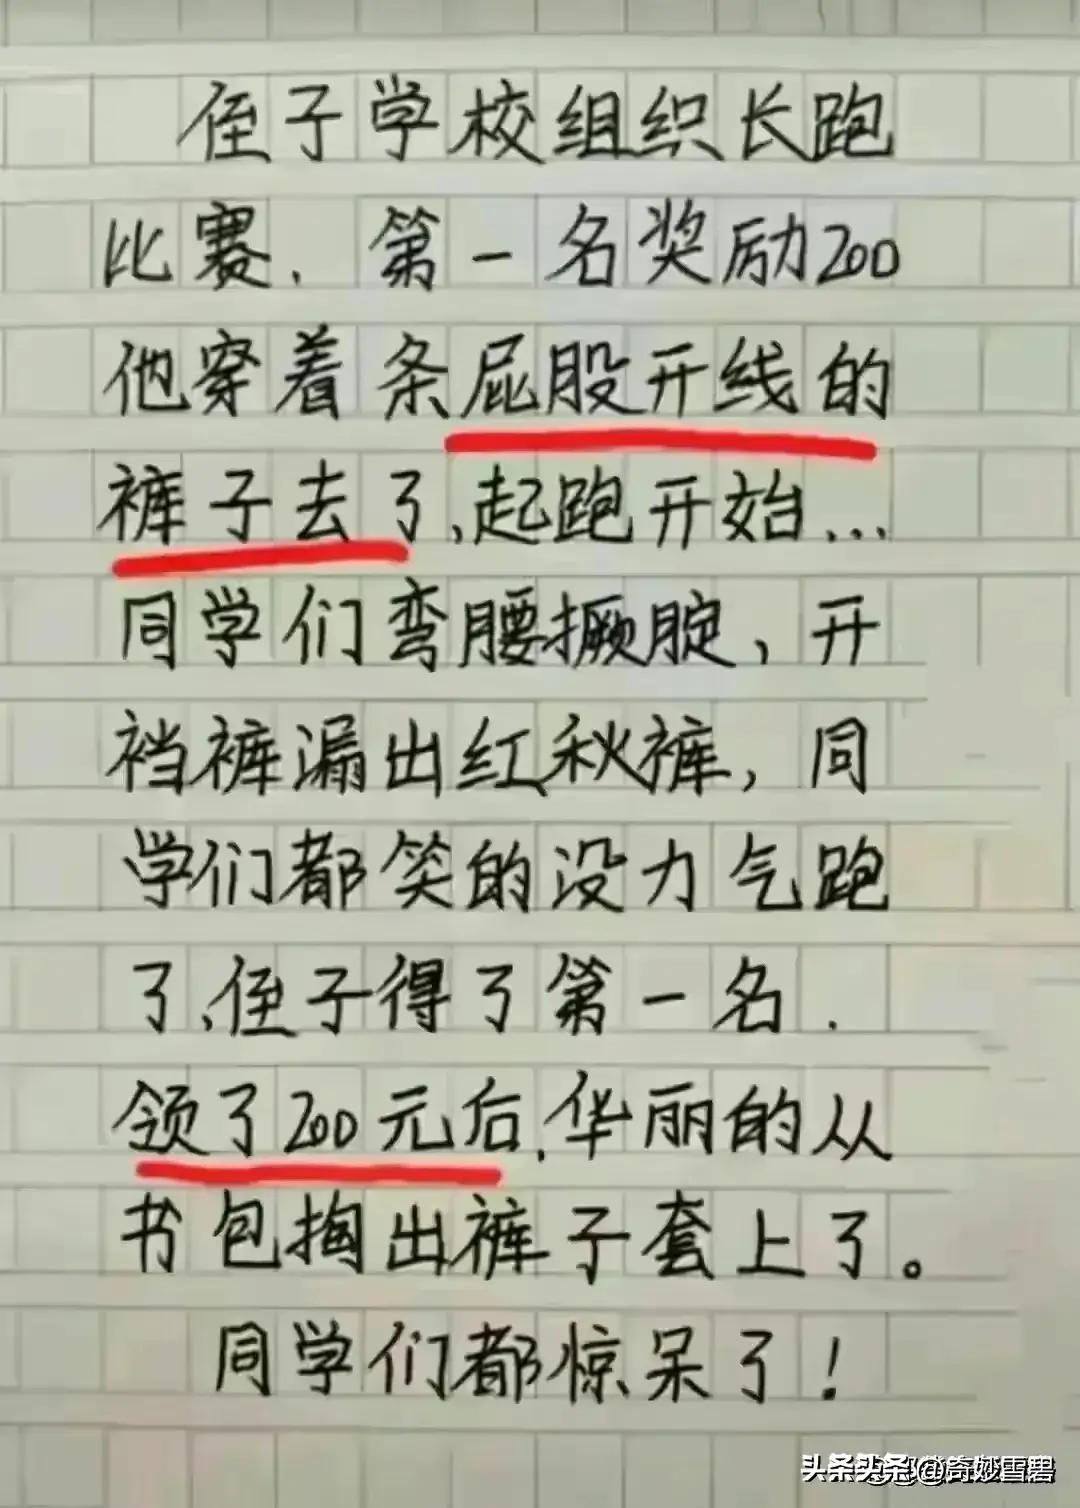 侄子学校组织长跑
比赛，第一名奖励200
他穿着条屁股开线的
裤子去了，起跑开始...
同学们弯腰撅腚，开
裆裤漏出红秋裤，同
学们都笑的没力气跑
了，侄子得了第一名．
领了200元后，华丽的从
书包掏出裤子套上了。
同学们都惊呆了！
头条 @奇妙雪碧